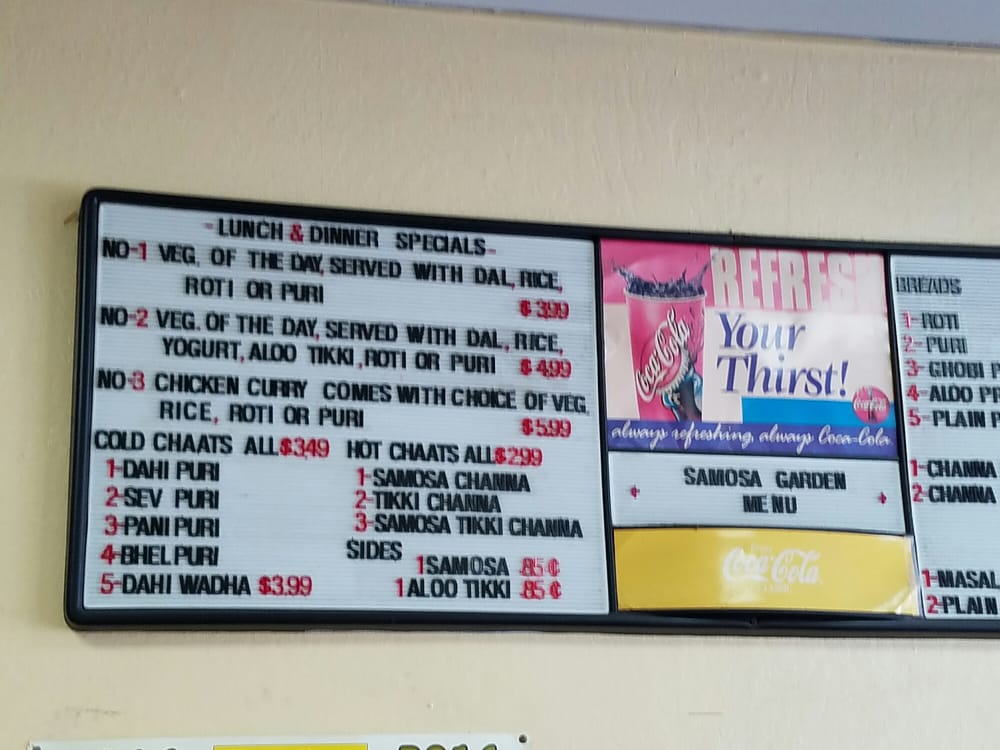 -LUNCH & DINNER SPECIALS-
NO-1 VEG. OF THE DAY, SERVED WITH DAL, RICE,
ROTI OR PURI
$399
NO-2 VEG. OF THE DAY, SERVED WITH DAL, RICE,
YOGURT, ALOO TIKKI, ROTI OR PURI $499
NO-3 CHICKEN CURRY COMES WITH CHOICE OF VEG.
RICE, ROTI OR PURI
$599
COLD CHAATS ALL $349
1-DAHI PURI
2-SEV PURI
3-PANI PURI
4-BHEL PURI
5-DAHI WADHA $3.99
HOT CHAATS ALL $299
1-SAMOSA CHANNA
2-TIKKI CHANNA
3-SAMOSA TIKKI CHANNA
SIDES
1 SAMOSA .85¢
1 ALOO TIKKI .85¢
REFRESH
Your
Thirst!
Coca-Cola
Coca-Cola
always refreshing, always Coca-Cola
SAMOSA GARDEN
MENU
Coca-Cola
BREADS
1-ROTI
2-PURI
3-GHOBI P
4-ALOO P
5-PLAIN P
1-CHANNA
2-CHANNA
1-MASAL
2-PLAIN